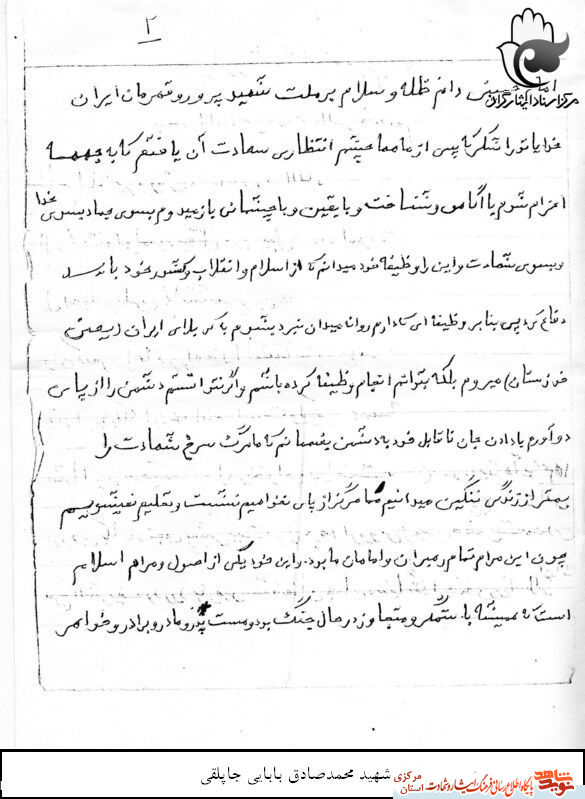 ۲
مرکز اسناد ایثارگران
دام ظله و سلام بر ملت شهید پرور و قهرمان ایران
خدایا تو را شکر که پس از ماهها چشم انتظاری سعادت آن یافتم که به جبهه
اعزام شوم با آگاهی و شناخت و با یقین و با چشمانی باز میدوم بسوی جهاد بسوی خدا
و بسوی شهادت و این را وظیفه خود میدانم که از اسلام و انقلاب و کشور خود باید
دفاع کرد پس بنابر وظیفه ای که دارم روانه میدان نبرد میشوم به کربلای ایران (یعنی)
خوزستان) میروم بلکه بتوانم انجام وظیفه کرده باشم و اگر نتوانستم دشمن را از پای
درآورم با دادن جان ناقابل خود به دشمن بفهمانم که ما مرگ سرخ شهادت را
بهتر از زندگی ننگین میدانیم ما هرگز از پای نخواهیم نشست و تسلیم نمیشویم
چون این مرام تمام رهبران و امامان ما بود. و این خود یکی از اصول و مرام اسلام
است که همیشه با ستمگر و متجاوز در حال جنگ بود و هست پدر و مادر و برادر و خواهر
شهید محمدصادق بابایی جاپلقی
نوید شاهد
پایگاه اطلاع رسانی فرهنگ ایثار و شهادت
استان مرکزی